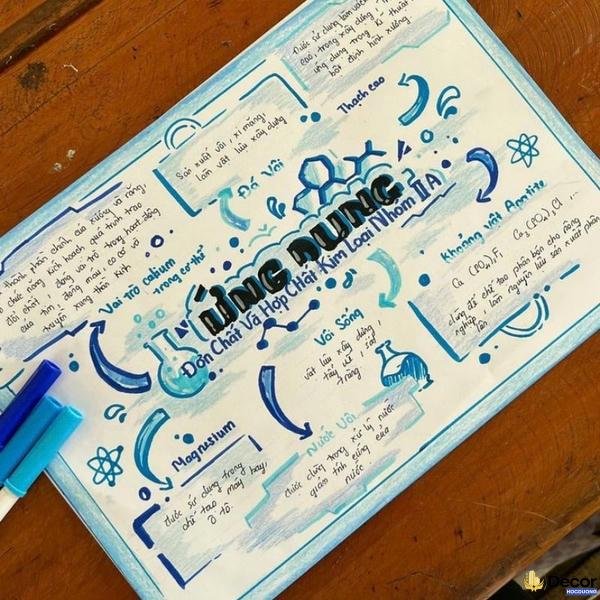 ỨNG DỤNG
Đơn Chất Và Hợp Chất Kim Loại Nhóm IIA
Đá Vôi
Sản xuất vôi, xi măng,
làm vật liệu xây dựng
Thạch cao
Được sử dụng
cao, trong xây dựng,
ứng dụng trong kĩ thuật
bột định hình xương.
Khoáng vật Apatite
dùng để chế tạo phân bón cho nông
nghiệp, làm nguyên liệu sản xuất phân
lân,
Vôi Sống
vật liệu xây dựng,
tẩy uế, sát
trùng.
Nước Vôi
được dùng trong xử lý nước
giảm tính cứng của
nước
Magnesium
được sử dụng trong
chế tạo máy bay,
ô tô.
Vai trò calcium
trong cơ thể
thành phần chính của xương và răng,
chức năng kích hoạt quá trình trao
đổi chất, đóng vai trò trong hoạt động
của tim, đông máu, co cơ và
truyền xung thần kinh
Decor
HOCDUONG